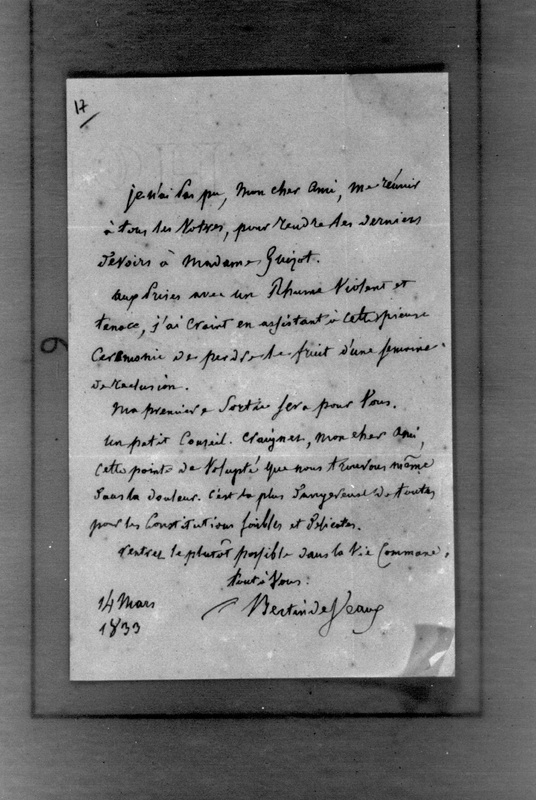 17
je n'ai pas pu, mon cher ami, me réunir
à tous les Notres, pour rendre les derniers
devoirs à Madame Guizot.
aux prises avec un Rhume Violent et
tenace, j'ai craint en assistant à cette pieuse
Ceremonie de perdre le fruit d'une semaine
de reclusion.
Ma premiere Sortie sera pour Vous.
un petit Conseil. craignez, mon cher ami,
cette pointe de Volupté que nous trouvons même
dans la douleur. c'est la plus dangereuse de toutes
pour les Constitutions foibles et delicates.
rentrez le plutôt possible dans la Vie Commune.
tout à Vous.
14 Mars
1833
Bertin de Veaux
9